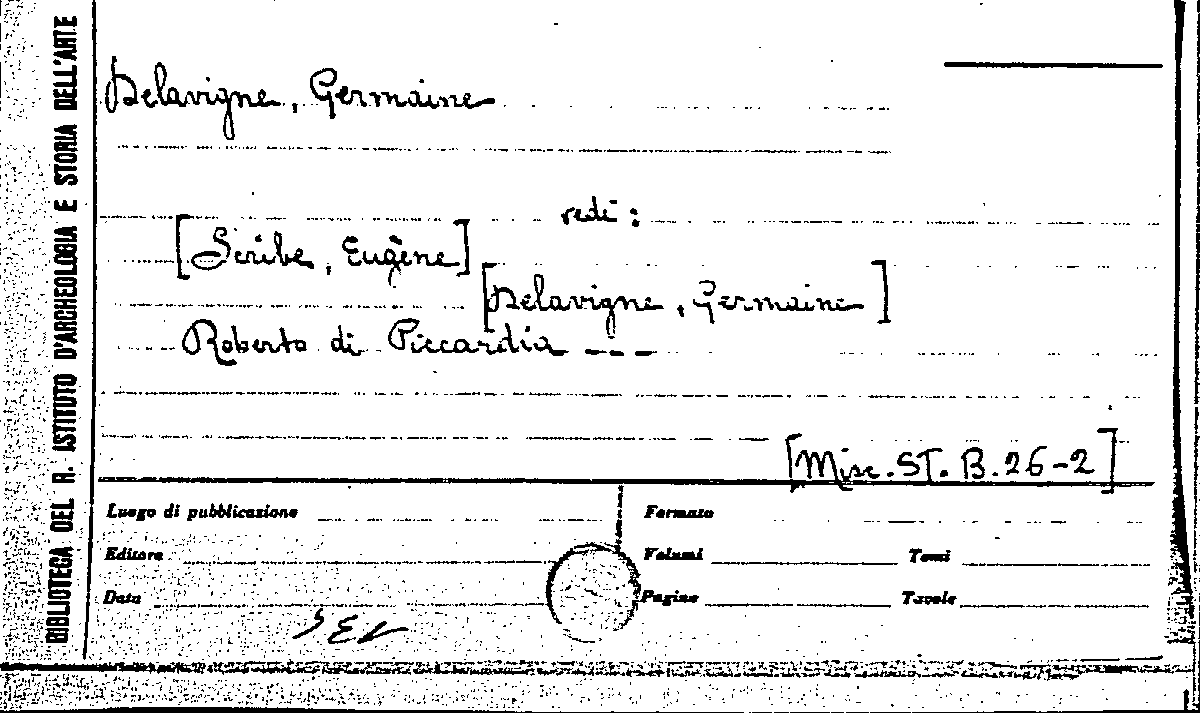 BIBLIOTECA DEL R. ISTITUTO D'ARCHEOLOGIA E STORIA DELL'ARTE
Delavigne, Germaine
vedi:
[Scribe, Eugène]
[Delavigne, Germaine]
Roberto di Piccardia ---
[Misc. ST. B. 26-2]
Luogo di pubblicazione
Formato
Editore
Volumi
Tomi
Data
Pagine
Tavole